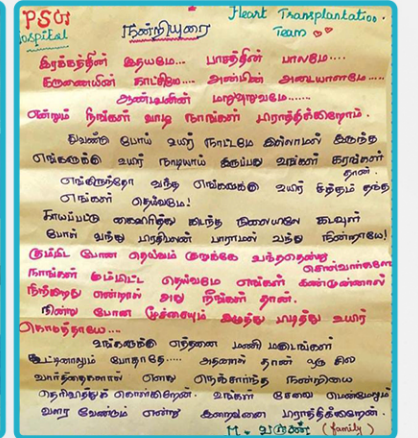 PSG
Hospital
நன்றியுரை
Heart Transplantation
Team
இரக்கத்தின் இதயமே.... பாசத்தின் பாலமே....
கருணையின் காட்சியே.... அன்பின் அடையாளமே....
ஆண்டவனின் மறுஉருவமே......
என்றும் நீங்கள் வாழ நாங்கள் பிரார்த்திக்கிறோம்.
துவண்டு போய் உயிர் நாட்டமே இல்லாமல் இருந்த
எங்களுக்கு உயிர் நாடியாய் இருப்பது உங்கள் கரங்கள்
தான்.
எங்கிருந்தோ வந்த எங்களுக்கு உயிர் சத்தம் தந்த
எங்கள் தெய்வமே!
காயப்பட்டு கிடந்த நிலையிலே கடவுள்
போல் வந்து பிரதிபலன் பாராமல் வந்து நின்றாயே!
கும்பிட போன தெய்வம் குறுக்கே வந்ததென்று
சொல்வார்களே
நாங்கள் கும்பிட்ட தெய்வமே எங்கள் கண்முன்னால்
நிற்கிறது என்றால் அது நீங்கள் தான்.
நின்று போன மூச்சையும் இழுத்து பிடித்து உயிர்
கொடுத்தாயே....
உங்களுக்கு எத்தனை மணி மகுடங்கள்
சூட்டினாலும் போதாதே..... அதனால் தான் ஒரு சில
வார்த்தைகளால் எனது நெஞ்சார்ந்த நன்றியை
தெரிவித்துக் கொள்கிறேன். உங்கள் சேவை மென்மேலும்
வளர வேண்டும் என்று இறைவனை பிரார்த்திக்கிறேன்.
M. (family)